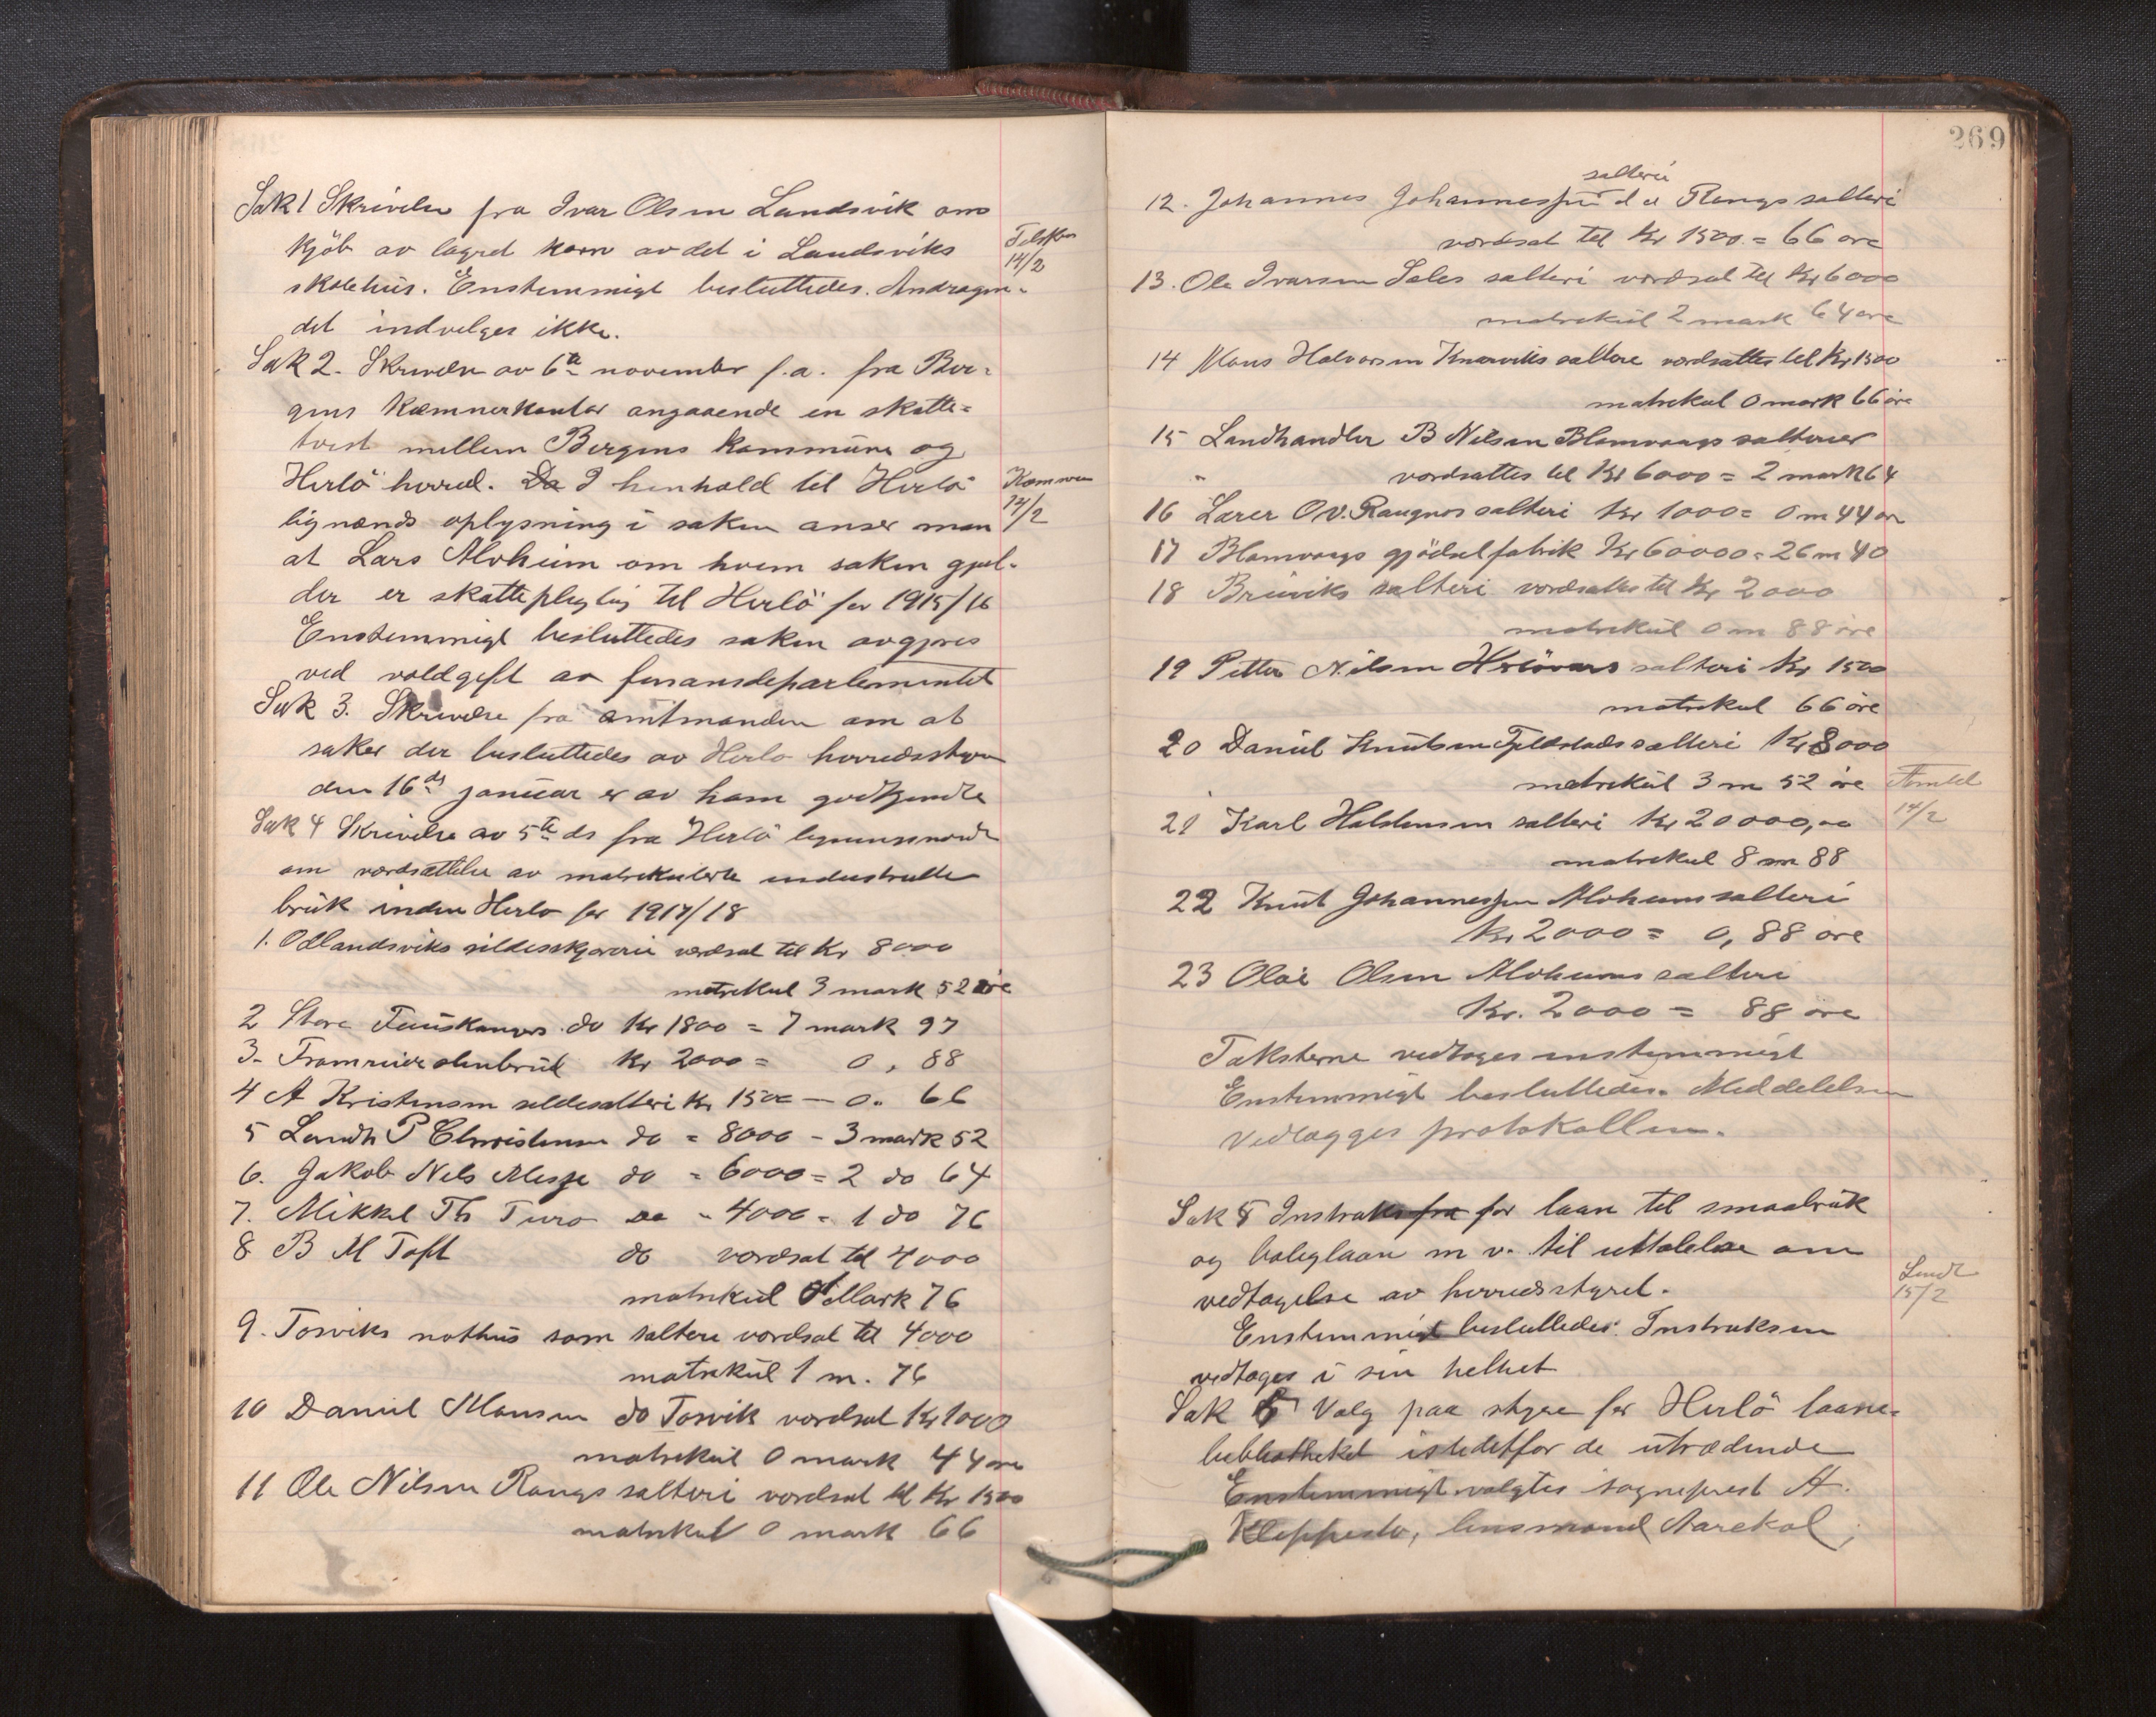 Sak 1 Skrivelse fra Ivar Olsen Landsvik om
kjöb av lagret korn av det i Landsviks
skolehus. Enstemmigt besluttedes. Andragen-
det indvelges ikke.
14/2
Sak 2. Skrivelse av 6te november f.a. fra Ber-
gens Kæmnerkontor angaaende en skatte-
tvist mellem Bergens kommune og
Herlö herred. Da I henhold til Herlö
lignænds oplysning i saken anser man
14/2
at Lars Alvheim om hvem saken gjel-
der er skattepligtig til Herlö for 1915/16
Enstemmigt besluttedes saken avgjøres
ved voldgift av finansdepartementet
Sak 3. Skrivelse fra amtmanden om at
saker der besluttedes av Herlö herredsstyre
den 16de januar er av ham godkjendte
Sak 4 Skrivelse av 5te ds fra Herlö ligningsnævnd
om værdsættelse av matrikulerte industrielle
bruk inden Herlö for 1917/18
1. Odlandsviks sildeskjæreri værdsat til Kr 8000
matrikul 3 mark 52 öre
2 Store do Kr 1800 = 7 mark 97
3. Kr 2000 = 0, 88
4 A Kristensen sildesalteri Kr 1500 — 0. 66
5 Landh P Christensen do = 8000 - 3 mark 52
6. Jakob Nils Misje do = 6000 = 2 do 64
7. Mikkel Th Turö do " 4000 = 1 do 76
8 B M Toft do værdsat til 4000
matrikul 1 Mark 76
9. Torviks nothus som salteri værdsat til 4000
matrikul 1 m. 76
10 Daniel Monsen do Torvik værdsat Kr 1000
matrikul 0 mark 44 öre
11 Ole Nilsen Rongs salteri værdsat til Kr 1500
matrikul 0 mark 66
269
salteri
12. Johannes Johannessen Rongs salteri
værdsat til Kr 1500. = 66 öre
13. Ole Ivarsen Soles salteri værdsat til Kr 6000
matrikul 2 mark 64 öre
14 Mons Halvorsen Knarviks salteri værdsattes til Kr 1500
matrikul 0 mark 66 öre
15 Landhandler B Nilsen Blomvaags salterier
" værdsattes til Kr 6000 = 2 mark 64
16 Lærer O.V. Raugnos salteri Kr 1000 = 0 m 44 öre
17 Blomvaags gjödselfabrik Kr 60000 = 26 m 40
18 Bruviks salteri værdsattes til Kr 2000
matrikul 0 m 88 öre
19 Petter Nilsen salteri Kr 1500
matrikul 66 öre
20 Daniel Knutsen Fjeldstads salteri Kr 8000
matrikul 3 m 52 öre
21 Karl Halstensen salteri Kr 20000,00
14/2
matrikul 8 m 88
22 Knut Johannessen Alvheims salteri
Kr 2000 = 0,88 öre
23 Olai Olsen Alvheims salteri
Kr. 2000 = 88 öre
Taksterne vedtoges enstemmigt
Enstemmigt besluttedes. Meddelelsen
vedlægges protokollen.
Sak 5 Instruks fra for laan til smaabruk
og boliglaan m v. til uttalelse om
vedtagelse av herredsstyret.
Sendt
15/2
Enstemmigt besluttedes: Instruksen
vedtages i sin helhet
Sak 6 Valg paa styre for Herlö laane-
bibliotheket istedetfor de utrædende
Enstemmigt valgtes sogneprest A.
Kleppestø, lensmand Aarekol,